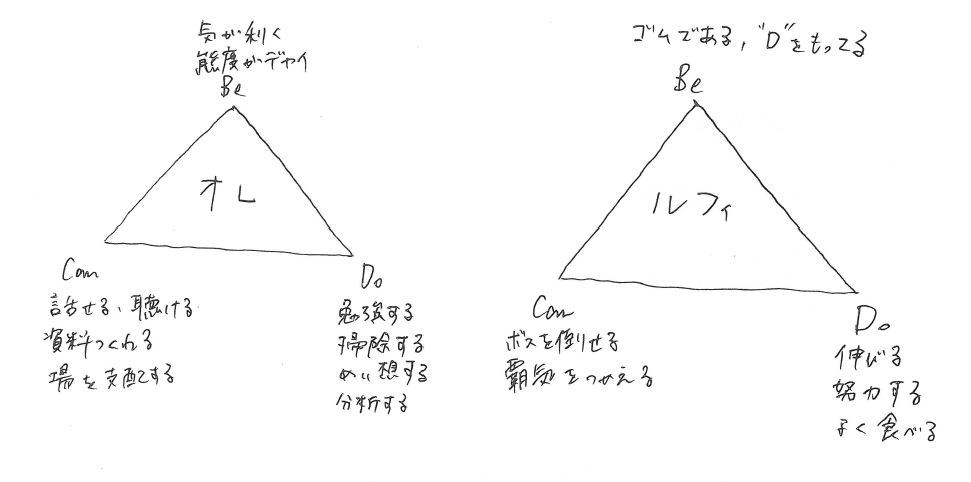 気が利く
態度がデカイ
Be
オレ
Can
話せる、聴ける
資料つくれる
場を支配する
Do
勉強する
掃除する
めい想する
分析する
ゴムである, "D"をもってる
Be
ルフィ
Can
ボスを倒せる
覇気をつかえる
Do
伸びる
努力する
よく食べる